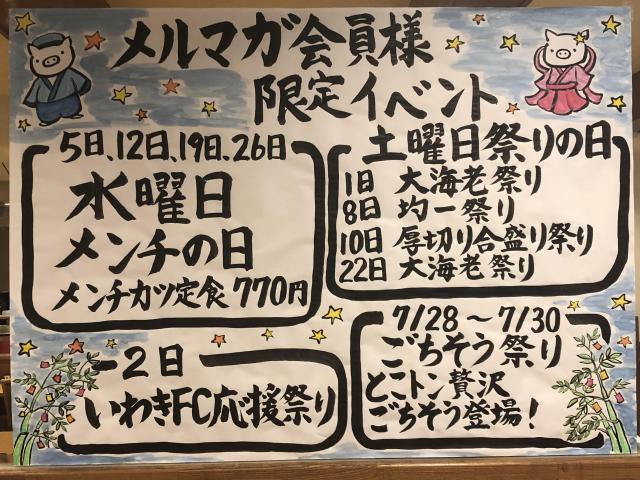 メルマガ会員様
限定イベント
5日、12日、19日、26日
水曜日
メンチの日
メンチカツ定食 770円
土曜日祭りの日
1日 大海老祭り
8日 均一祭り
10日 厚切り合盛り祭り
22日 大海老祭り
2日
いわきFC応援祭り
7/28～7/30
ごちそう祭り
とことン贅沢
ごちそう登場！